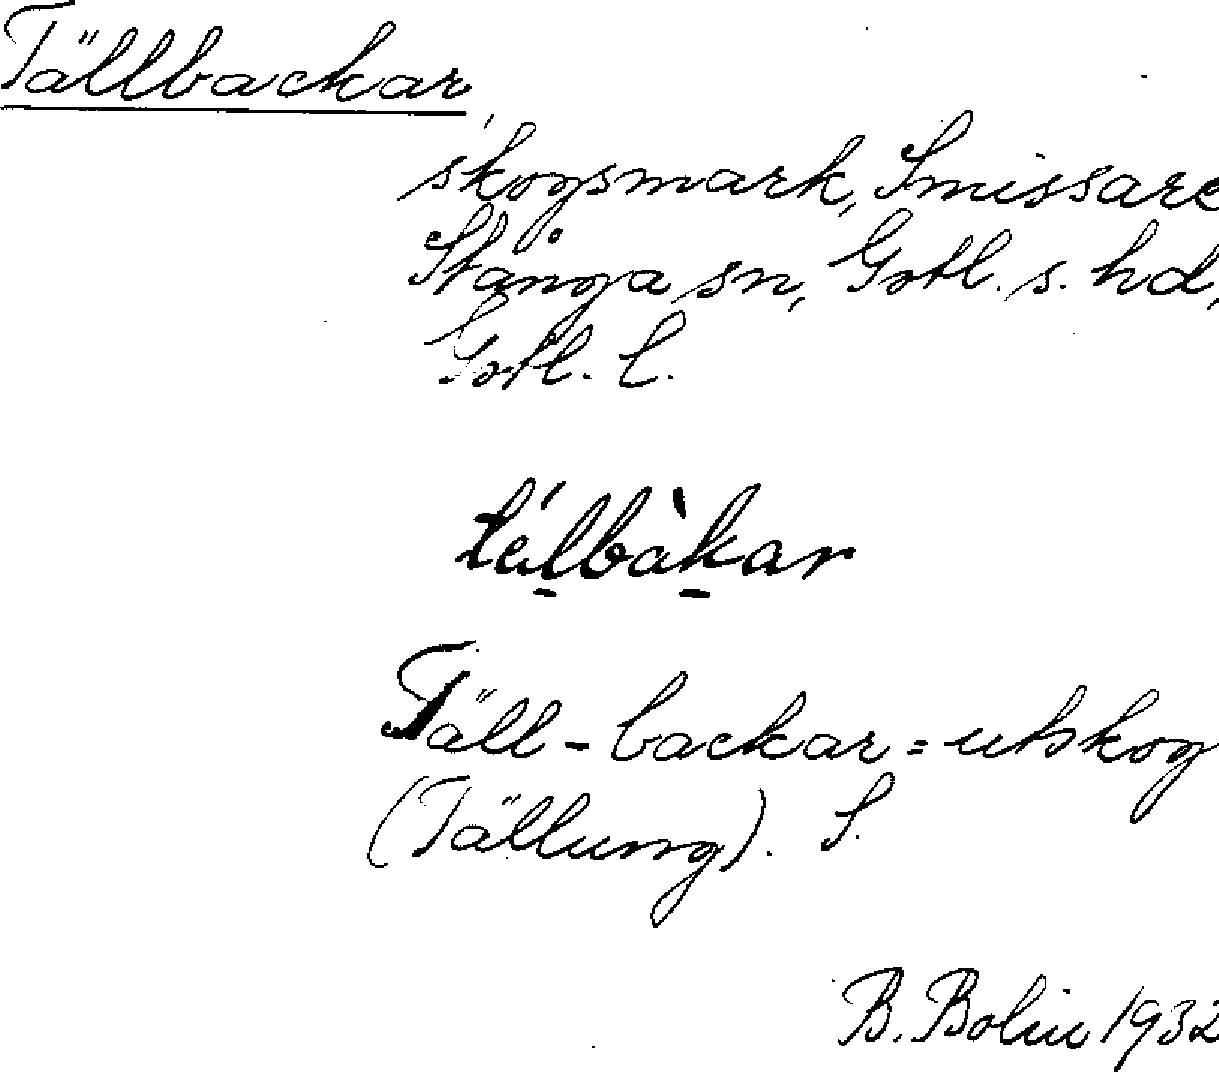 Tällbackar,
skogsmark, Smissare
Stånga sn, Gotl. s. hd,
Gotl. l.
Täll-backar = utskog
(Tällung). S.
B. Bolin 1932